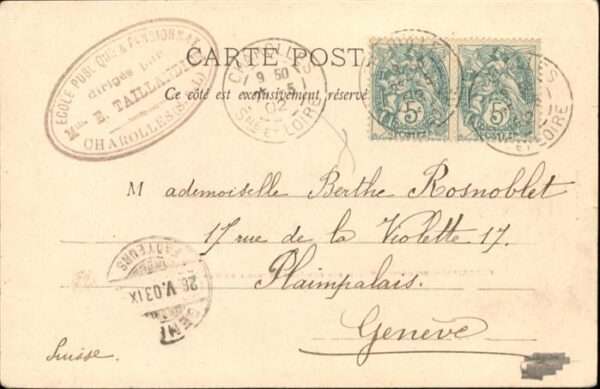 ECOLE PUBLIQUE & PENSIONNAT
dirigés par
Mlle E. TAILLANDIER
CHAROLLES (S&L)
CARTE POSTALE
Ce côté est exclusivement réservé
CHAROLLES
9 50
5
02
SNE ET LOIRE
5c
5c
ET LOIRE
Mademoiselle Berthe Rosnoblet
17 rue de la Violette 17.
Plaimpalais.
Genève
Suisse.
FACTEURS
26 V.03 IX